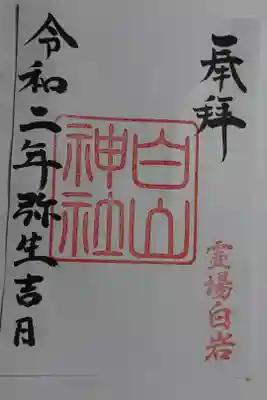 奉拝
霊場白岩
白山
神社
令和二年弥生吉日